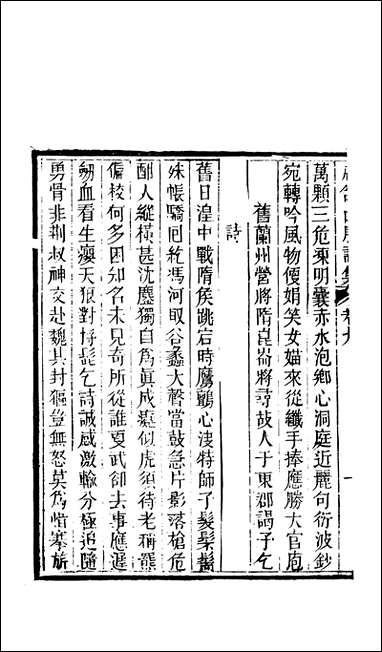 萬顆三危凍明囊赤水泡鄉心洞庭近麗句衍波鈔
宛轉吟風物便娟笑女媌來從纖手捧應勝大官庖
舊蘭州營將隋昆崙將尋故人于東鄉謁予乞
詩
舊日湟中戰隋侯跳宕時鷹鸇心淒特師子髮鬃
殊帳驕回紇馮河取谷蠡大聲當鼓急片影落槍危
酣人縱橫甚沈麈獨自爲眞成癡似虎須待老稱羆
偏校何多困知名未見奇所從誰夏武卻去事應遲
劒血看生瘿天狼對捋髭乞詩誠感激輸分極追隨
勇骨非荆叔神交赴魏其封豨豈無怒莫爲惜摹旂